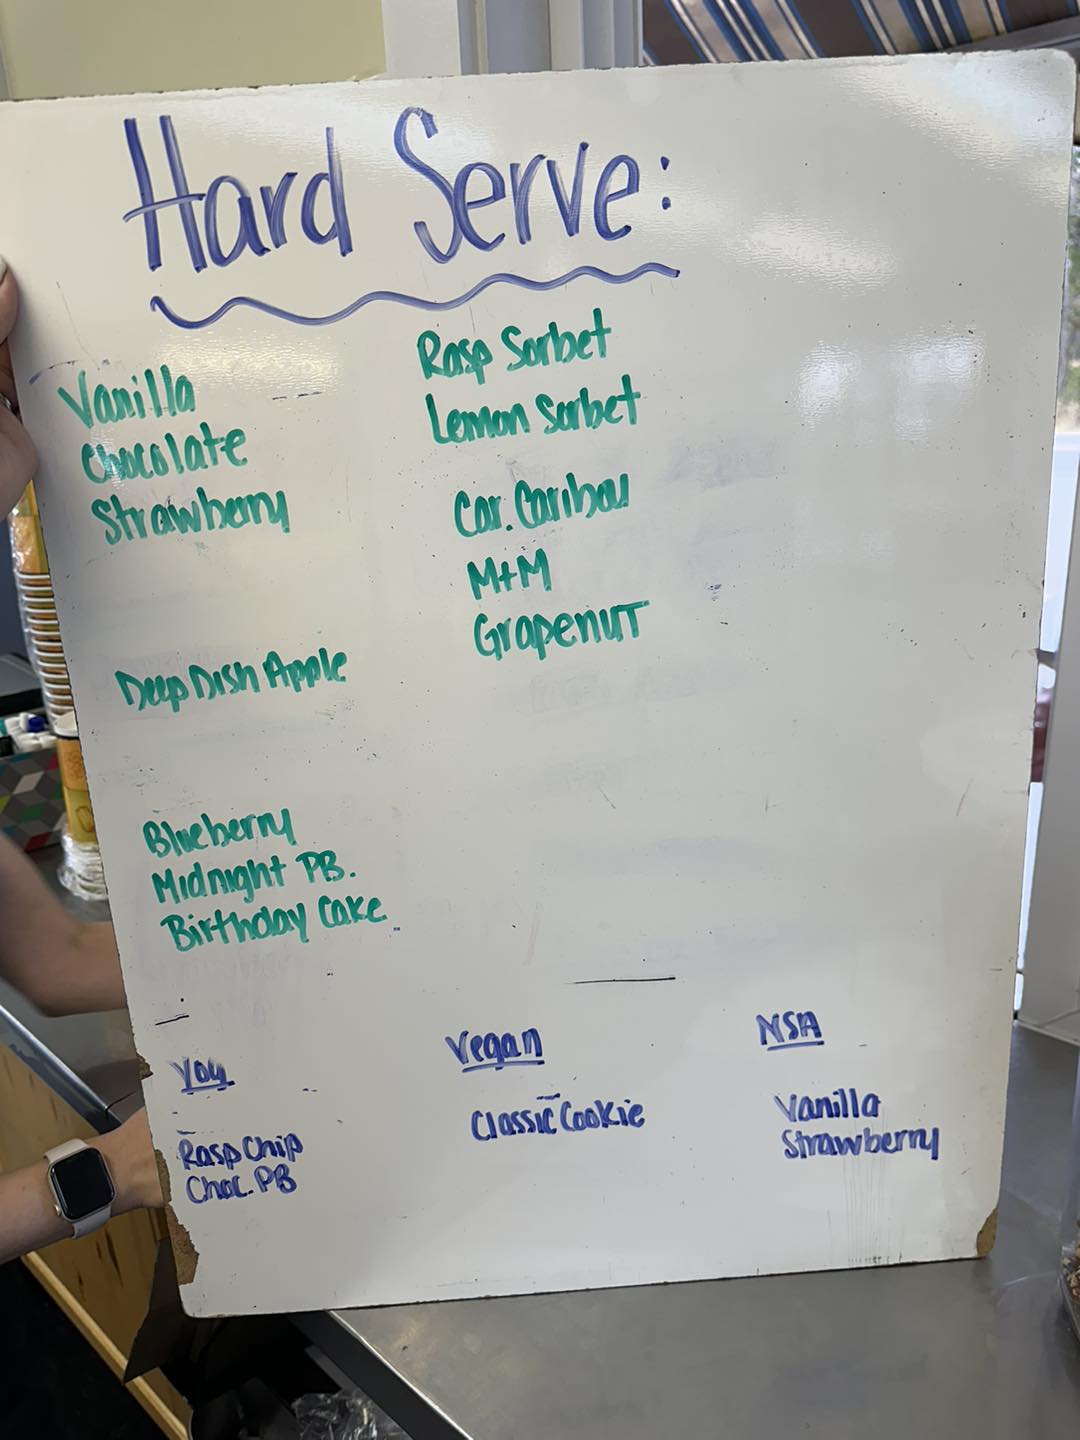 Hard Serve:
Vanilla
Chocolate
Strawberry
Deep Dish Apple
Blueberry
Midnight PB.
Birthday Cake
Rasp Sorbet
Lemon Sorbet
Car. Caribou
M+M
Grapenut
Yog
Rasp Chip
Choc. PB
Vegan
Classic Cookie
NSA
Vanilla
Strawberry